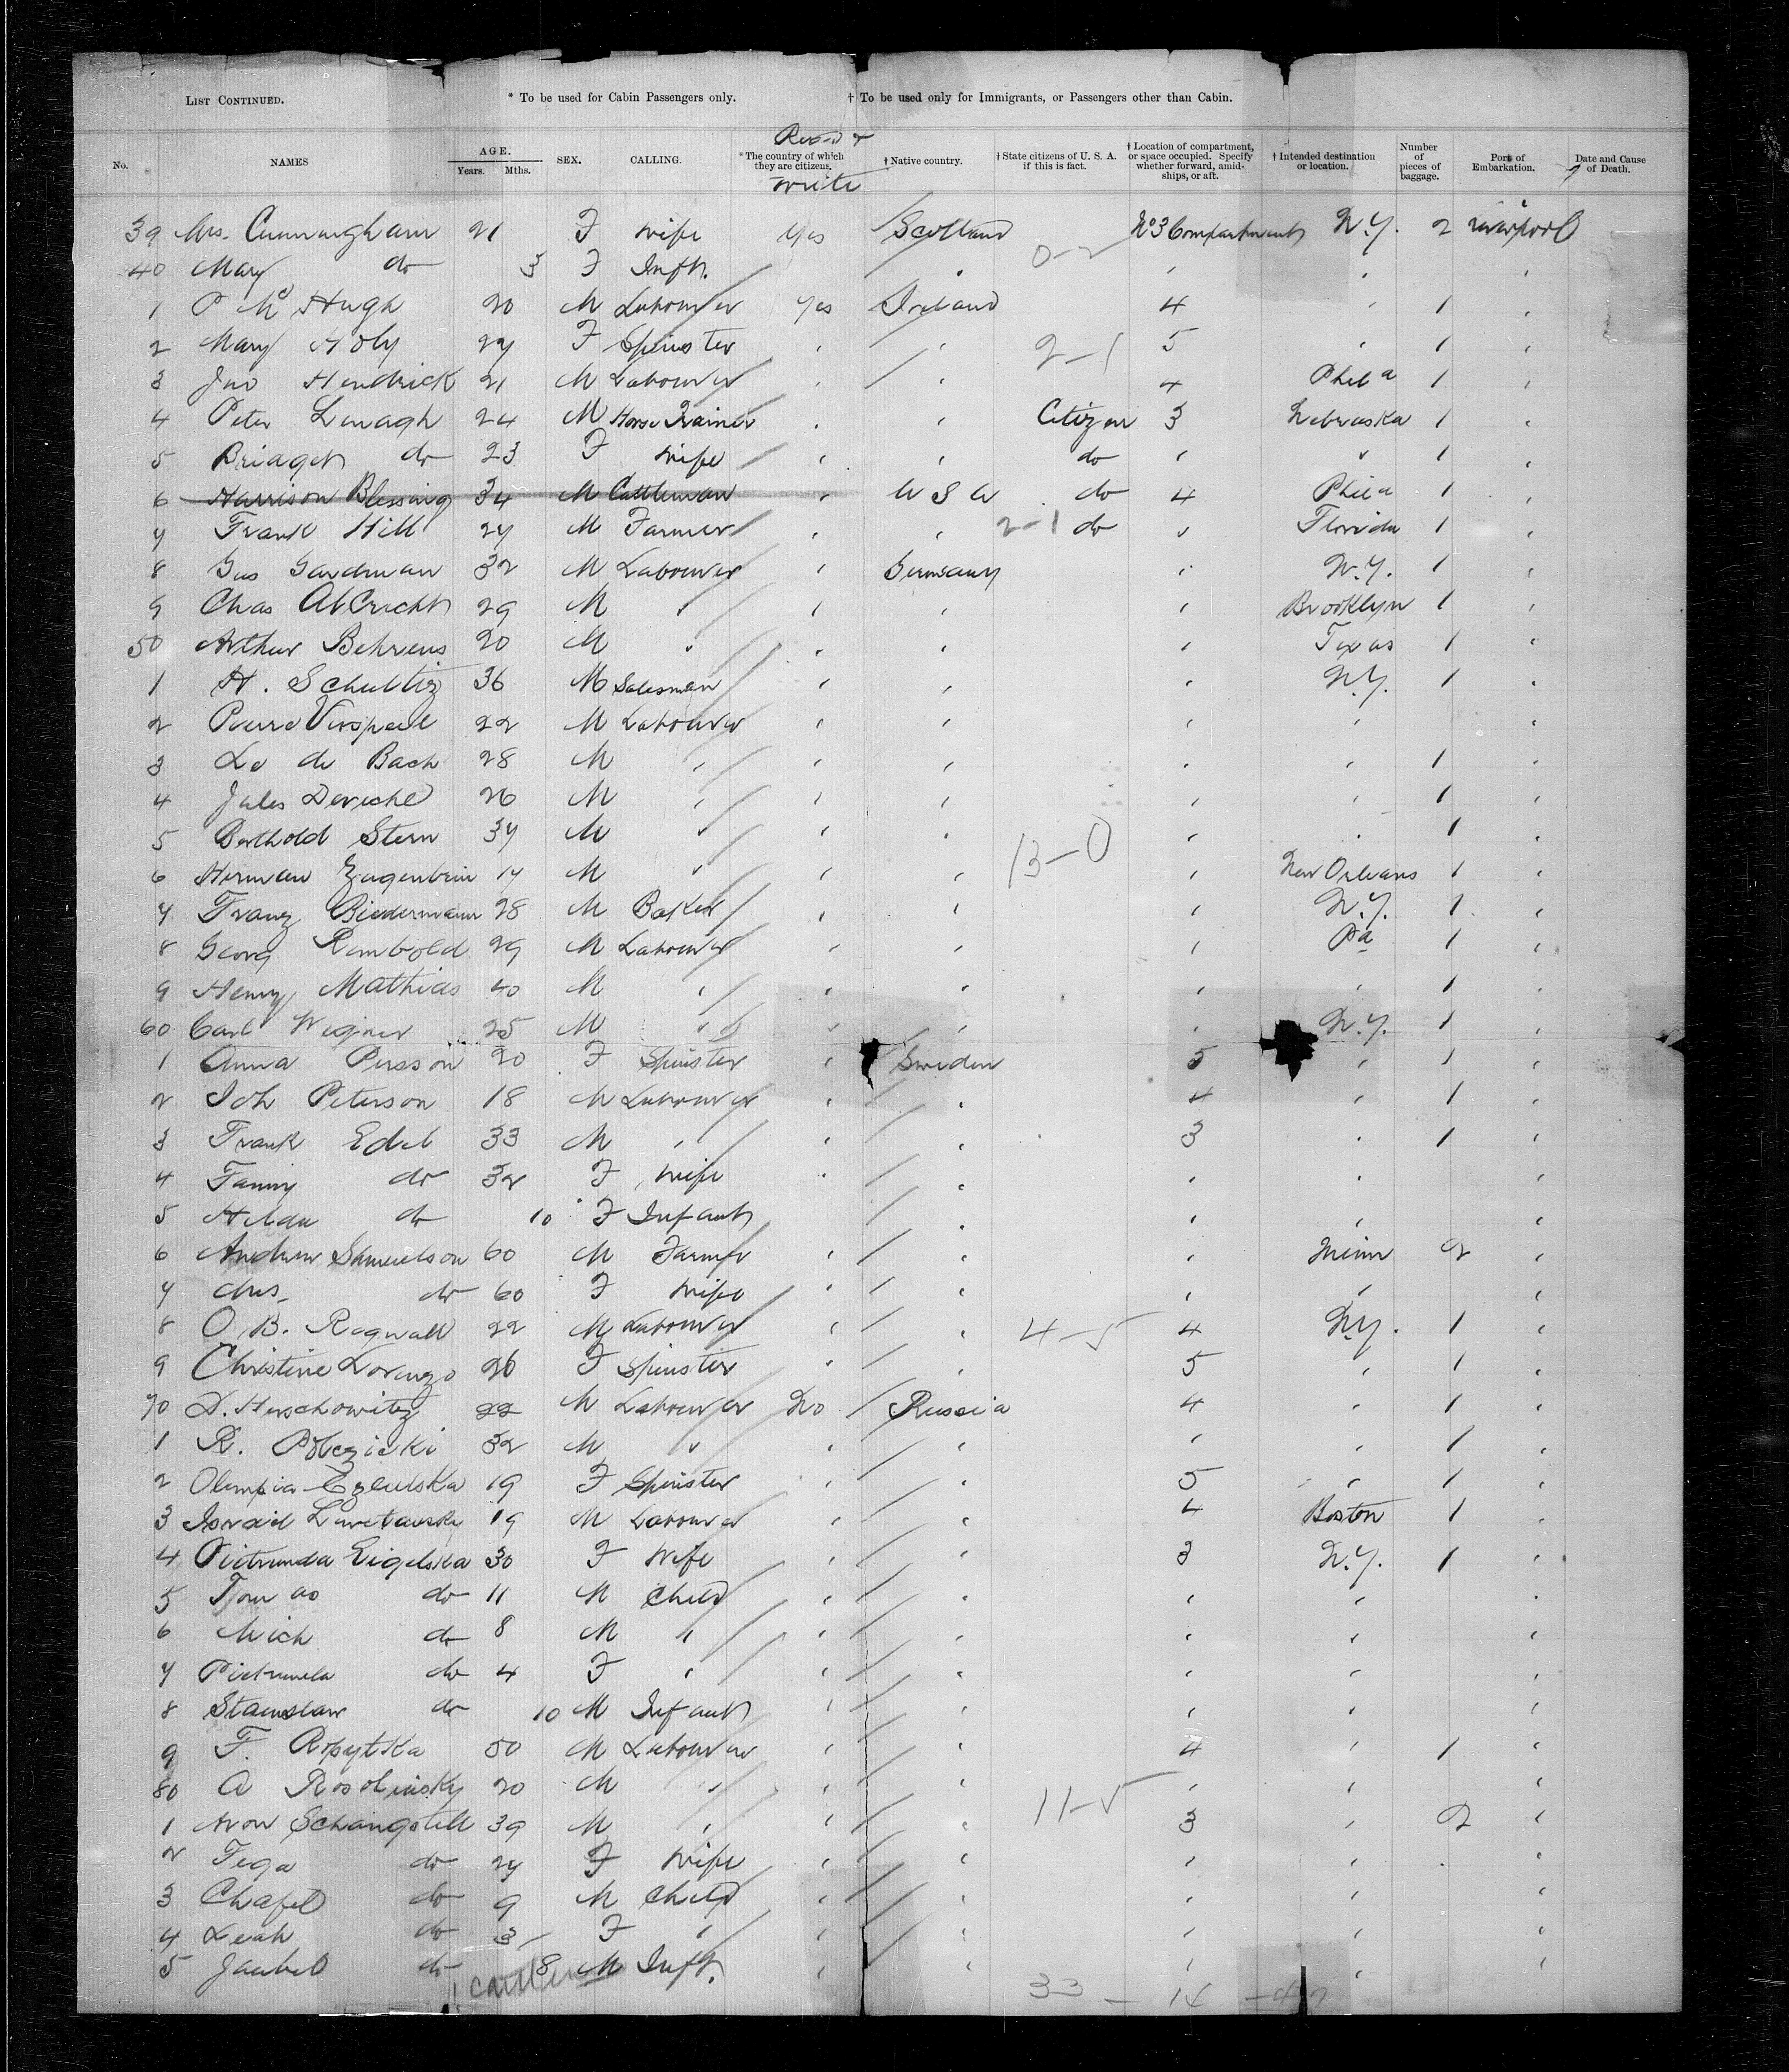 LIST CONTINUED. * To be used for Cabin Passengers only. † To be used only for Immigrants, or Passengers other than Cabin.
No. NAMES AGE. Years. Mths. SEX. CALLING. Read & write *The country of which they are citizens. †Native country. †State citizens of U. S. A. if this is fact. †Location of compartment, or space occupied. Specify whether forward, amidships, or aft. †Intended destination or location. Number of pieces of baggage. Port of Embarkation. Date and Cause of Death.
39 Mrs. Cunningham 21 F Wife Yes Scotland No 3 Compartment N.Y. 2 Liverpool
40 Mary do 3 F Inft. 0-2 " " "
1 P McHugh 20 M Labourer Yes Ireland 4 " 1 "
2 Mary Holy 27 F Spinster " " 2-1 5 " 1 "
3 Jno Hendrick 21 M Labourer " " 4 Phila 1 "
4 Peter Lenagh 24 M Horse Trainer " " Citizen 3 Nebraska 1 "
5 Bridget do 23 F Wife " " do " " 1 "
6 Harrison Blessing 34 M Cattleman " U S A do 4 Phila 1 "
7 Frank Hill 27 M Farmer " " 2-1 do " Florida 1 "
8 Gus Gardman 32 M Labourer " Germany " N.Y. 1 "
9 Chas Albricht 29 M " " " " Brooklyn 1 "
50 Arthur Behrens 20 M " " " " Texas 1 "
1 H. Schultz 36 M Salesman " " " N.Y. 1 "
2 Pierre Verspeel 22 M Labourer " " " " "
3 Le de Bach 28 M " " " " " 1 "
4 Jules Deriche 26 M " " " " " 1 "
5 Berthold Stern 37 M " " " 13-0 " " 1 "
6 Herman 17 M " " " " New Orleans 1 "
7 Franz Biedermann 28 M Baker " " " N.Y. 1 "
8 Georg Rembold 29 M Labourer " " " Pa 1 "
9 Henry Mathias 40 M " " " " " 1 "
60 Carl Wegner 25 M " " " " N.Y. 1 "
1 Anna Persson 20 F Spinster " Sweden 5 " 1 "
2 Joh Peterson 18 M Labourer " " 4 " 1 "
3 Frank Edel 33 M " " " 3 " 1 "
4 Fanny do 32 F Wife " " " " "
5 Hilda do 10 F Infant " " " "
6 Andrew Samuelson 60 M Farmer " " " Minn 2 "
7 Mrs do 60 F Wife " " " " "
8 O. B. Ragwall 22 M Labourer " " 4-5 4 N.Y. 1 "
9 Christine Lorenzo 26 F Spinster " " 5 " 1 "
70 D. Herschowitz 22 M Labourer No Russia 4 " 1 "
1 R. 32 M " " " " " 1 "
2 Olimpia 19 F Spinster " 5 " 1 "
3 Israel 19 M Labourer " " 4 Boston 1 "
4 Eigelska 30 F Wife " " 3 N.Y. 1 "
5 do 11 M Child " " " " "
6 Mich do 8 M " " " " " "
7 do 4 F " " " " " "
8 Stanislaw do 10 M Infant " " " " "
9 F. Ropytka 50 M Labourer " " 4 " 1 "
80 A Rosolinsky 20 M " " " 11-5 " " "
1 Aron 39 M " " " 3 " 2 "
2 Fega do 27 F Wife " " " " "
3 do 9 M Child " " " " "
4 Leah do 3 F " " " " " "
5 do 8 M Inft. " " " " "
33 - 14 - 47